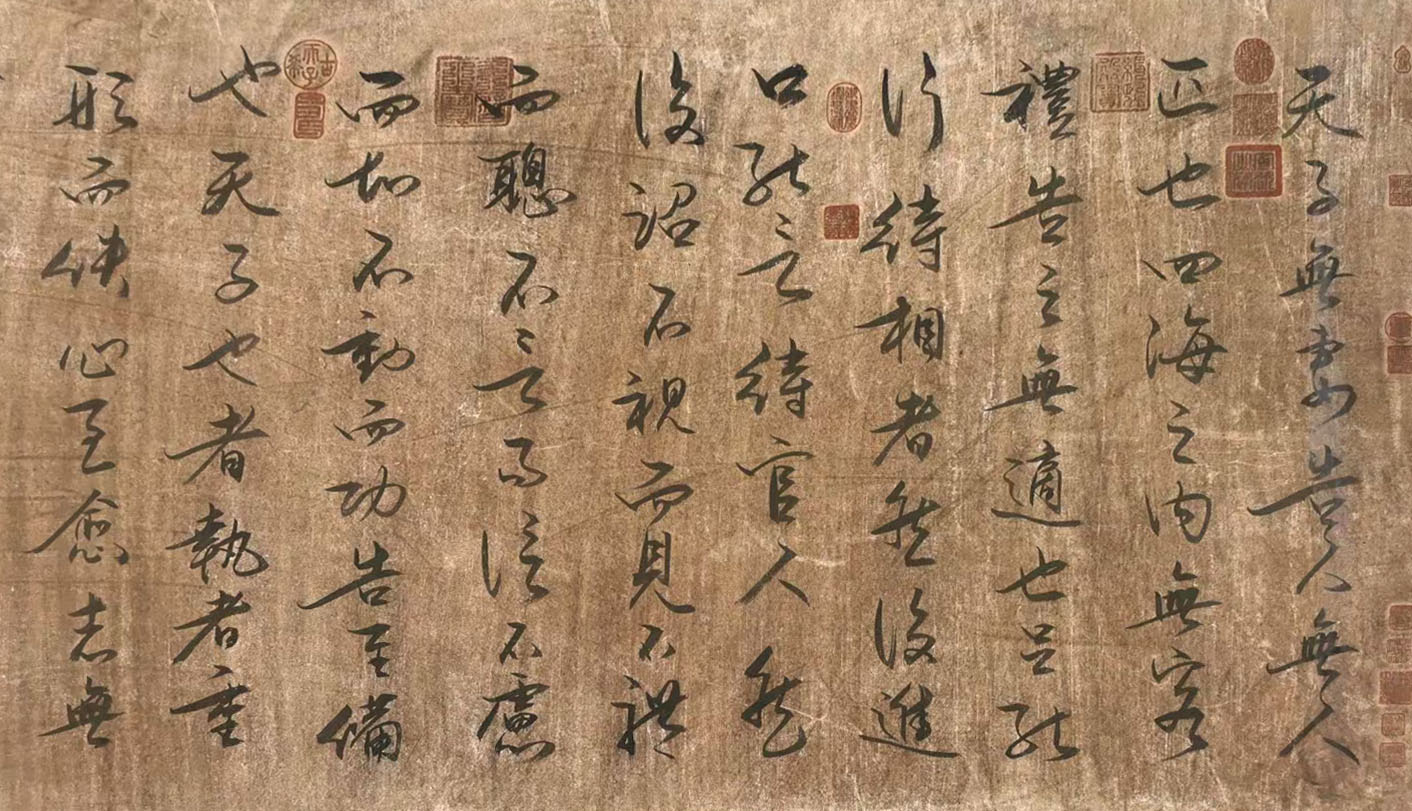 天子無妻告人無人
匹也四海之内無客
禮告之無適也足能
行待相者然後進
口能言待官人然
後詔不視而見不聽
而聰不言而信不慮
而知不動而功告至備
也天子也者執者重
形而佚心至愈志無